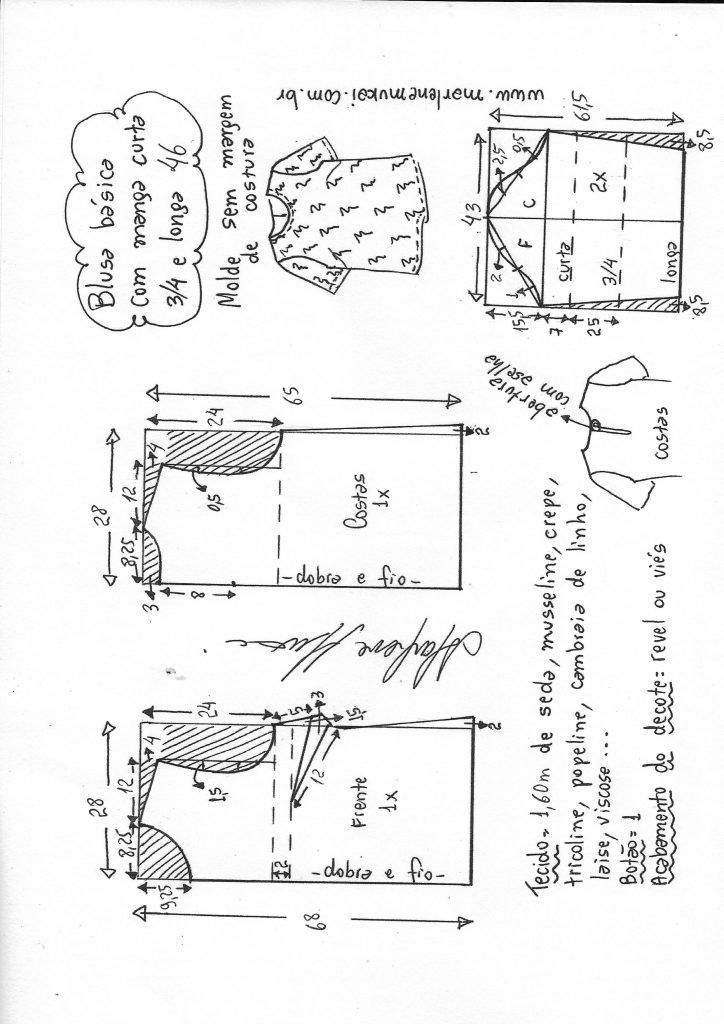 Blusa básica
com manga curta
3/4 e longa 46
Molde sem margem
de costura
www.marlenemukai.com.br
28
8,25
12
4
24
9,25
1,5
5
3
1,5
12
2
2
68
Frente
1x
-dobra e fio-
28
8,25
12
4
24
65
3
8
0,5
2
Costas
1x
-dobra e fio-
43
61,5
2
2,5
0,5
1
F
C
15,5
7
25
curta
3/4
2x
longa
8,5
8,5
abertura
com aselha
costas
Marlene Mukai
Tecido = 1,60m de seda, musseline, crepe,
tricoline, popeline, cambraia de linho,
laise, viscose ...
Botão = 1
Acabamento do decote = revel ou viés